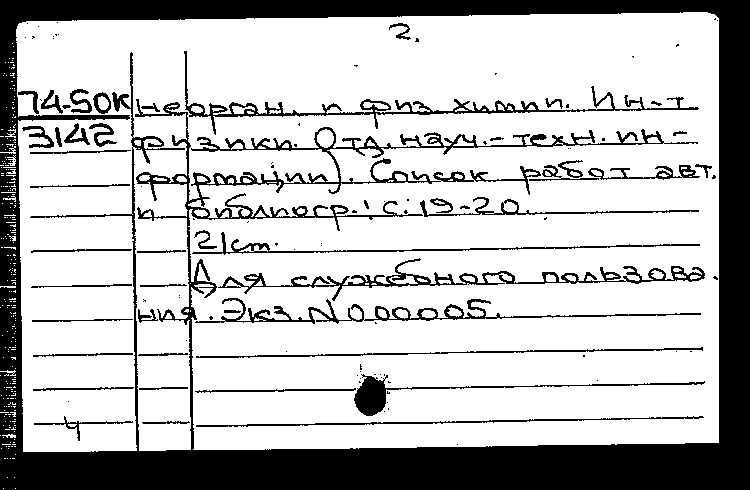 2.
74-50К неорган. и физ. химии. Ин-т
3142 физики. Отд. науч.-техн. ин-
формации). Список работ авт.
и библиогр.: с. 19-20.
21 ст.
Для служебного пользова.
ния. Экз. N 000005.
4